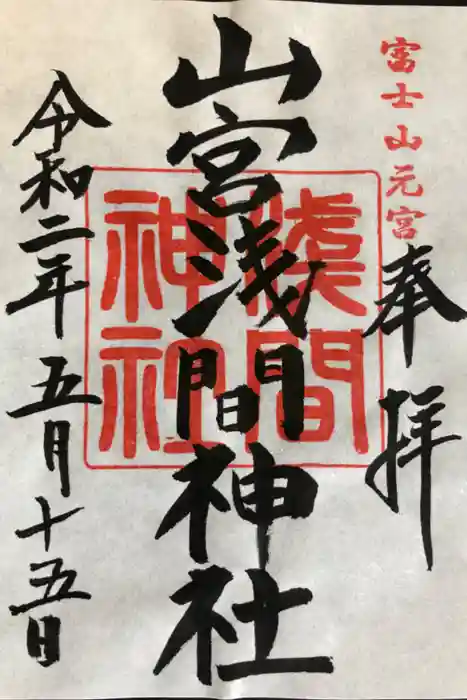 富士山元宮
奉拝
山宮浅間神社
淺間
神社
令和二年五月十五日